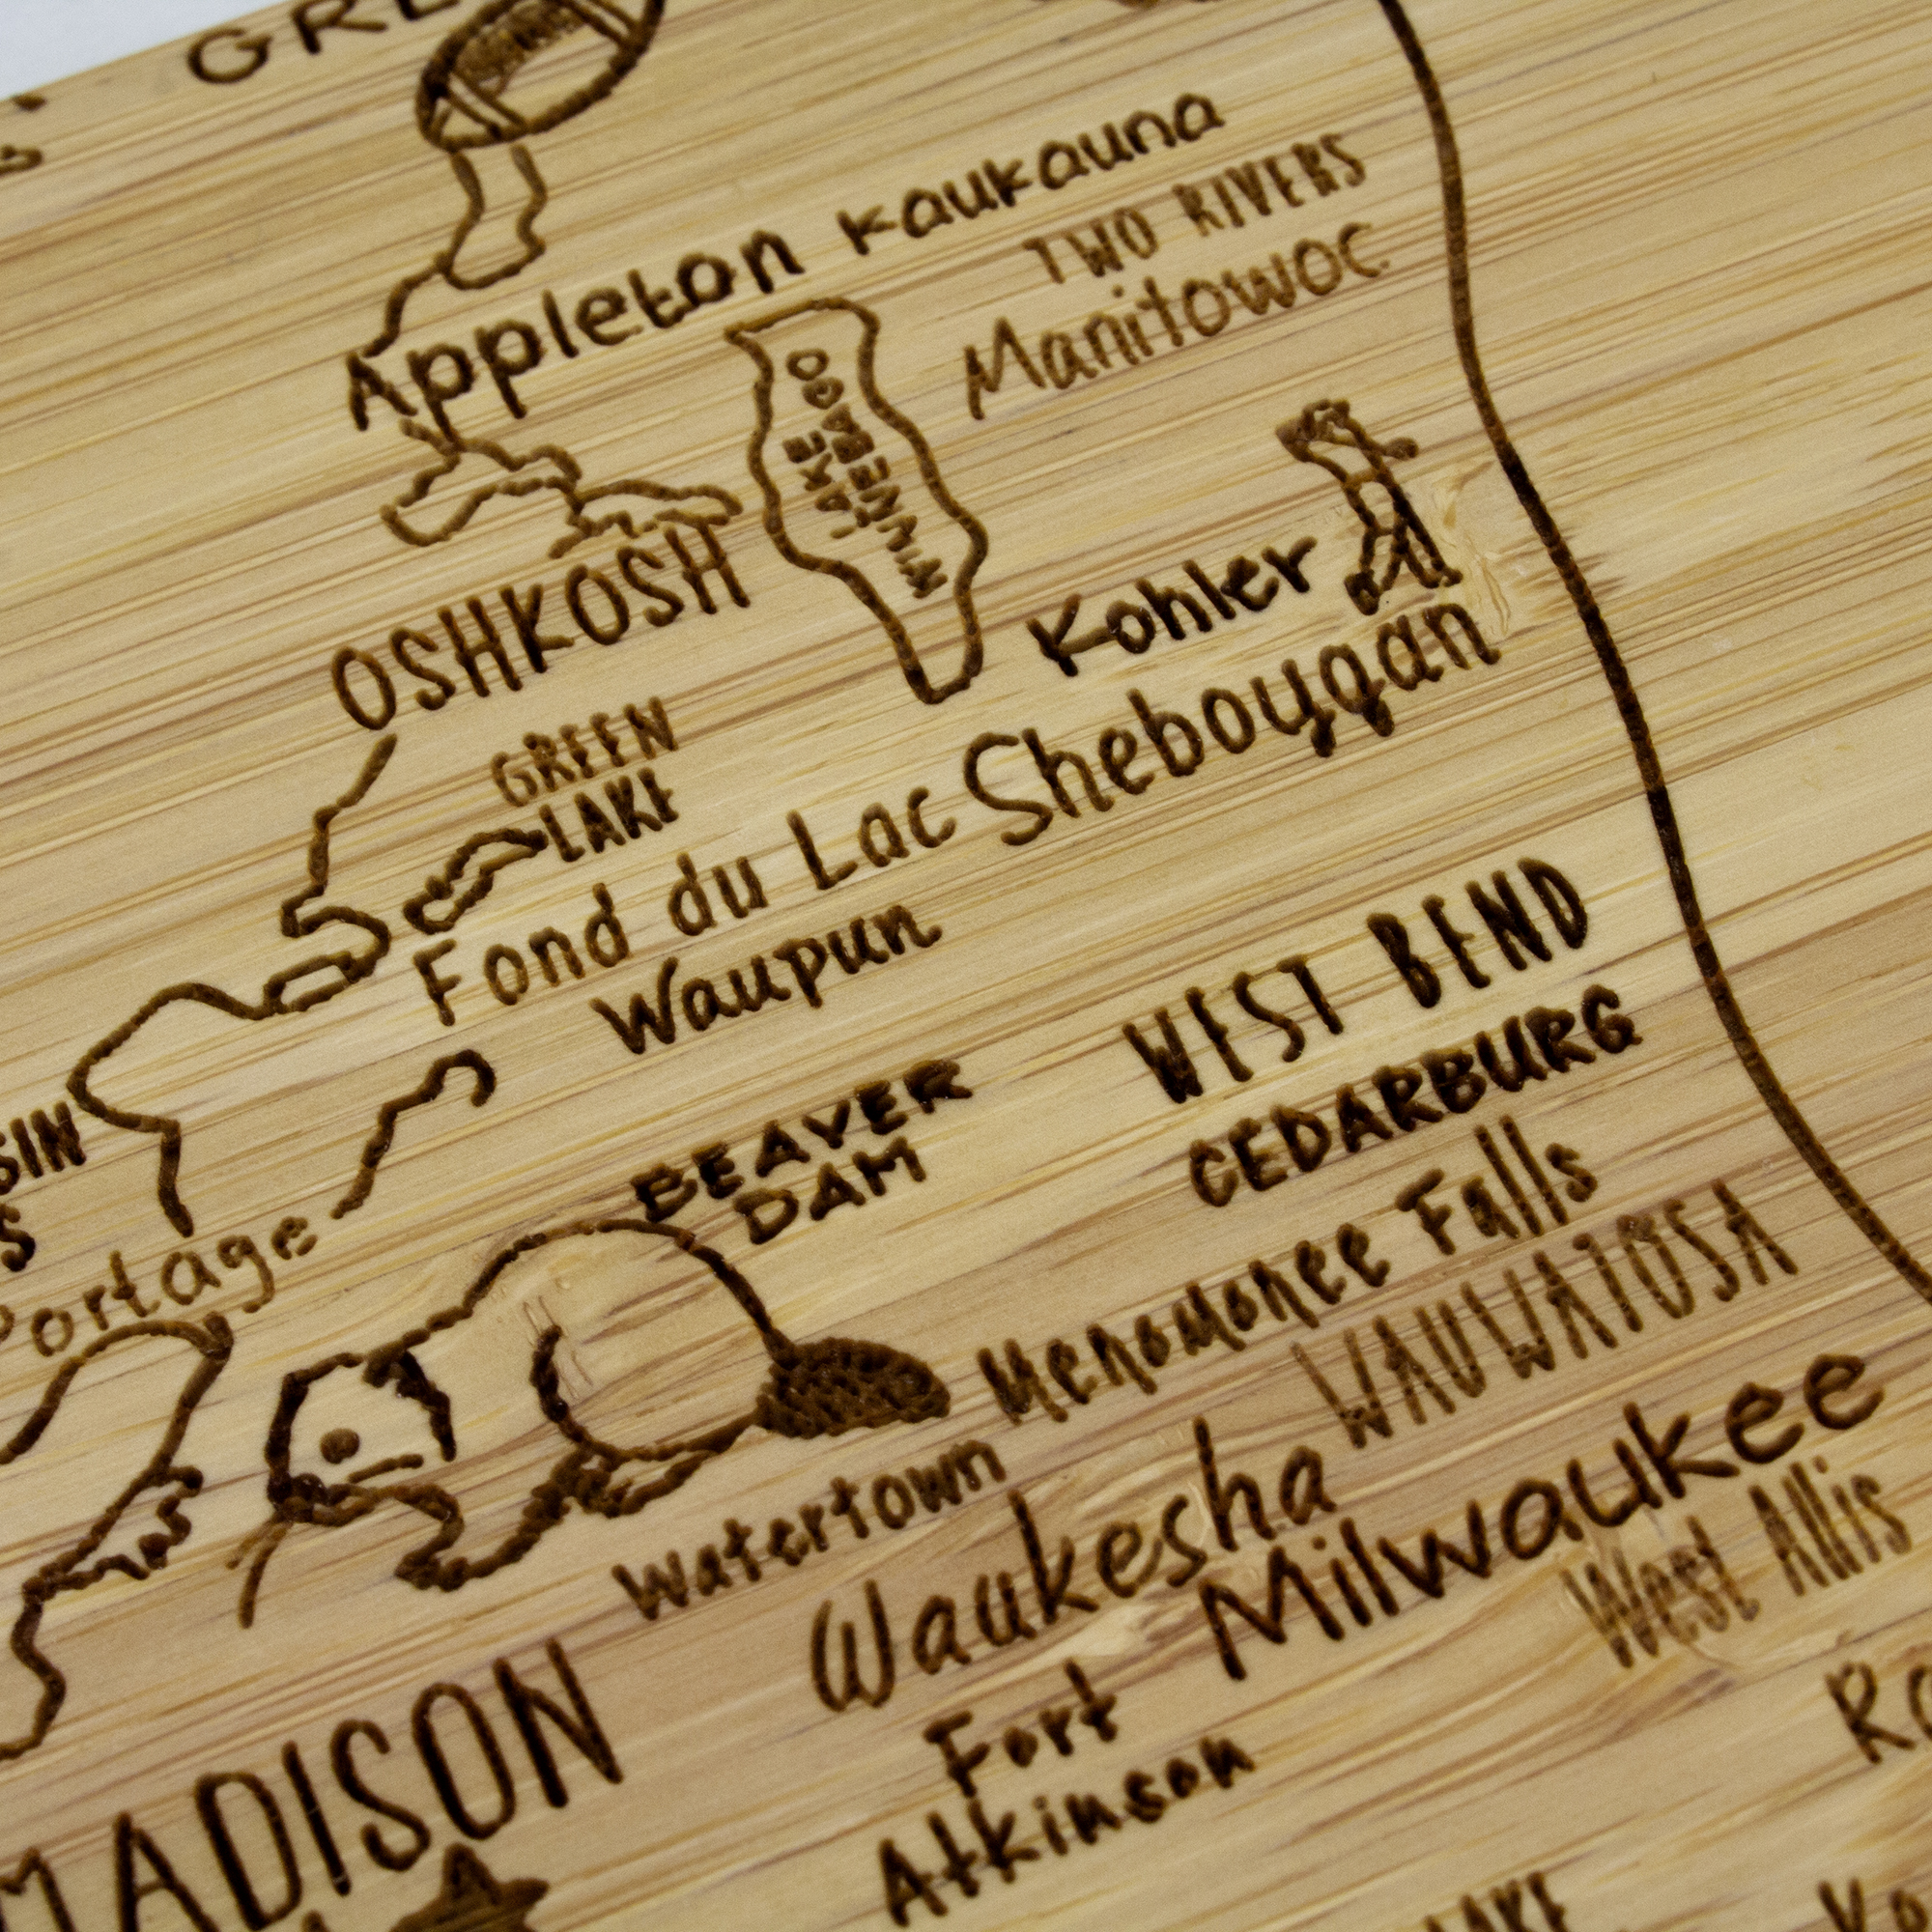 GRE
Appleton
Kaukauna
TWO RIVERS
Manitowoc
LAKE
WINNEBAGO
OSHKOSH
Kohler
Sheboygan
GREEN
LAKE
Fond du Lac
Waupun
WEST BEND
CEDARBURG
BEAVER
DAM
SIN
S
Portage
Menomonee Falls
WAUWATOSA
Watertown
Waukesha
Milwaukee
West Allis
MADISON
Fort
Atkinson
LAKE